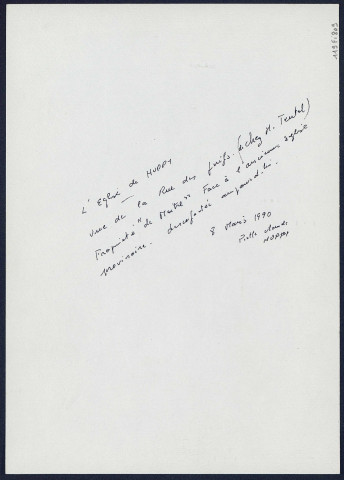 L'Eglise de MORRY
vue de la Rue des Juifs. (chez M. Teutel)
Propriété "de Maître" Face à l'ancienne église
provisoire. desaffectée aujourd'hui.
8 Mars 1990
MORRY